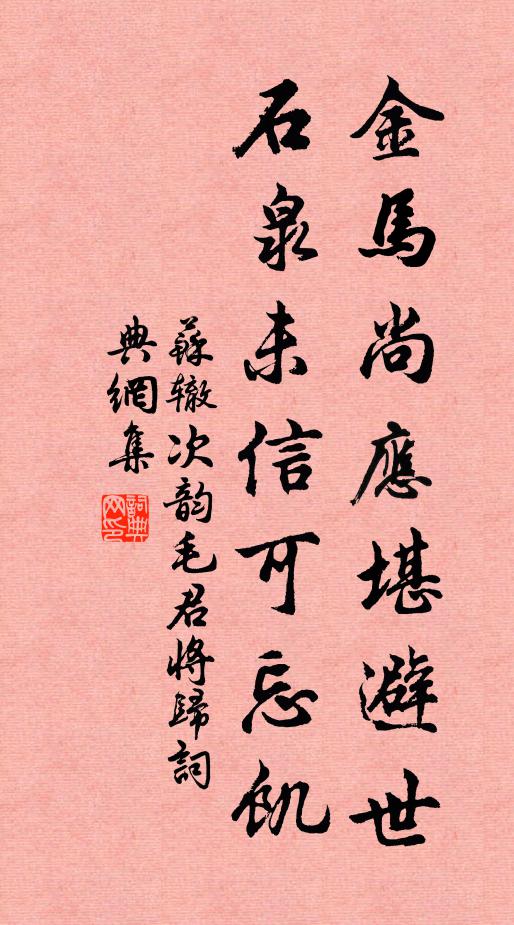 金馬尚應堪避世
石泉未信可忘飢
蘇辙次韵毛君将歸詞
典網集
詞典
网印